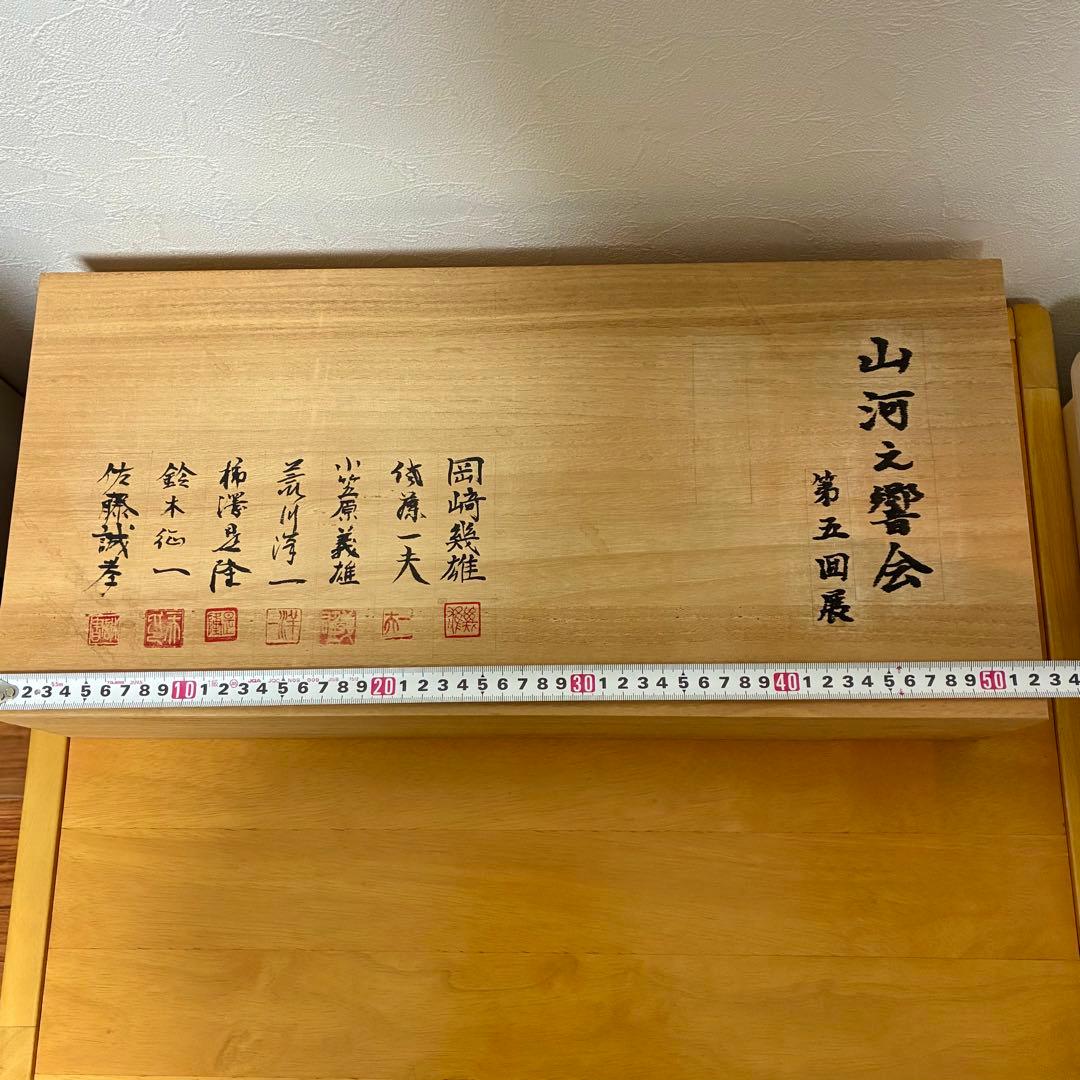 山河之響会
第五回展
岡﨑幾雄
後藤一夫
小笠原義雄
荒川洋一
柿澤是隆
鈴木征一
佐藤誠孝
2 3 4 5 6 7 8 9 10 1 2 3 4 5 6 7 8 9 20 1 2 3 4 5 6 7 8 9 30 1 2 3 4 5 6 7 8 9 40 1 2 3 4 5 6 7 8 9 50 1 2 3 4